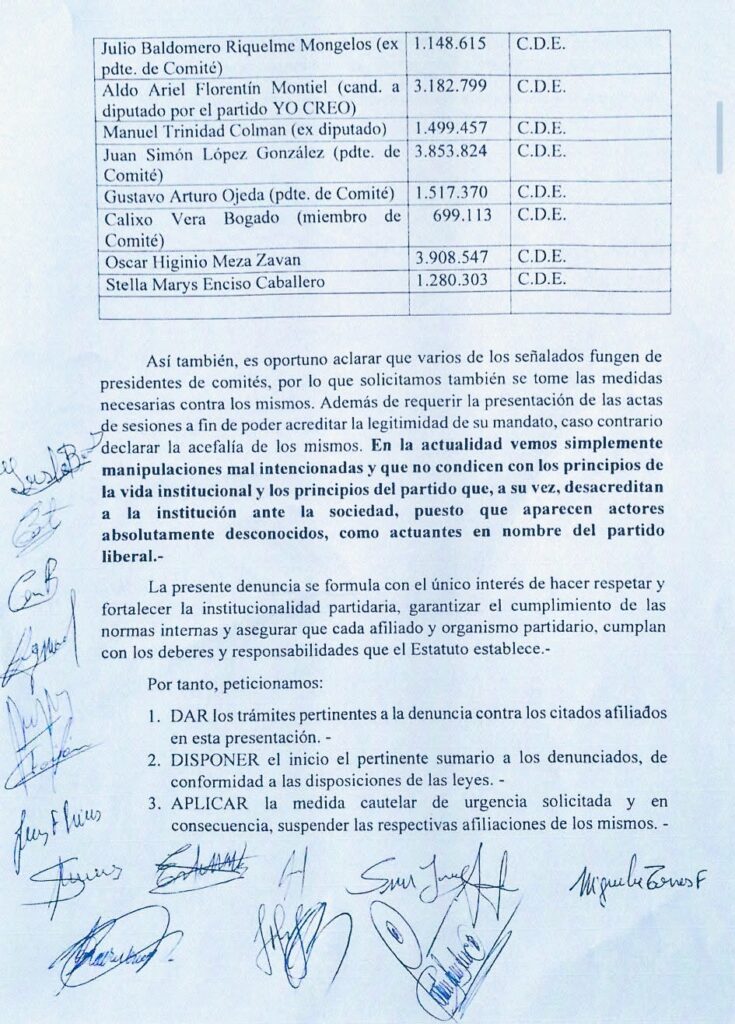 Julio Baldomero Riquelme Mongelos (ex 1.148.615 C.D.E.
pdte. de Comité)
Aldo Ariel Florentín Montiel (cand. a 3.182.799 C.D.E.
diputado por el partido YO CREO)
Manuel Trinidad Colman (ex diputado) 1.499.457 C.D.E.
Juan Simón López González (pdte. de 3.853.824 C.D.E.
Comité)
Gustavo Arturo Ojeda (pdte. de Comité) 1.517.370 C.D.E.
Calixo Vera Bogado (miembro de 699.113 C.D.E.
Comité)
Oscar Higinio Meza Zavan 3.908.547 C.D.E.
Stella Marys Enciso Caballero 1.280.303 C.D.E.
Así también, es oportuno aclarar que varios de los señalados fungen de
presidentes de comités, por lo que solicitamos también se tome las medidas
necesarias contra los mismos. Además de requerir la presentación de las actas
de sesiones a fin de poder acreditar la legitimidad de su mandato, caso contrario
declarar la acefalía de los mismos. En la actualidad vemos simplemente
manipulaciones mal intencionadas y que no condicen con los principios de
la vida institucional y los principios del partido que, a su vez, desacreditan
a la institución ante la sociedad, puesto que aparecen actores
absolutamente desconocidos, como actuantes en nombre del partido
liberal.-
La presente denuncia se formula con el único interés de hacer respetar y
fortalecer la institucionalidad partidaria, garantizar el cumplimiento de las
normas internas y asegurar que cada afiliado y organismo partidario, cumplan
con los deberes y responsabilidades que el Estatuto establece.-
Por tanto, peticionamos:
1. DAR los trámites pertinentes a la denuncia contra los citados afiliados
en esta presentación. -
2. DISPONER el inicio el pertinente sumario a los denunciados, de
conformidad a las disposiciones de las leyes. -
3. APLICAR la medida cautelar de urgencia solicitada y en
consecuencia, suspender las respectivas afiliaciones de los mismos. -